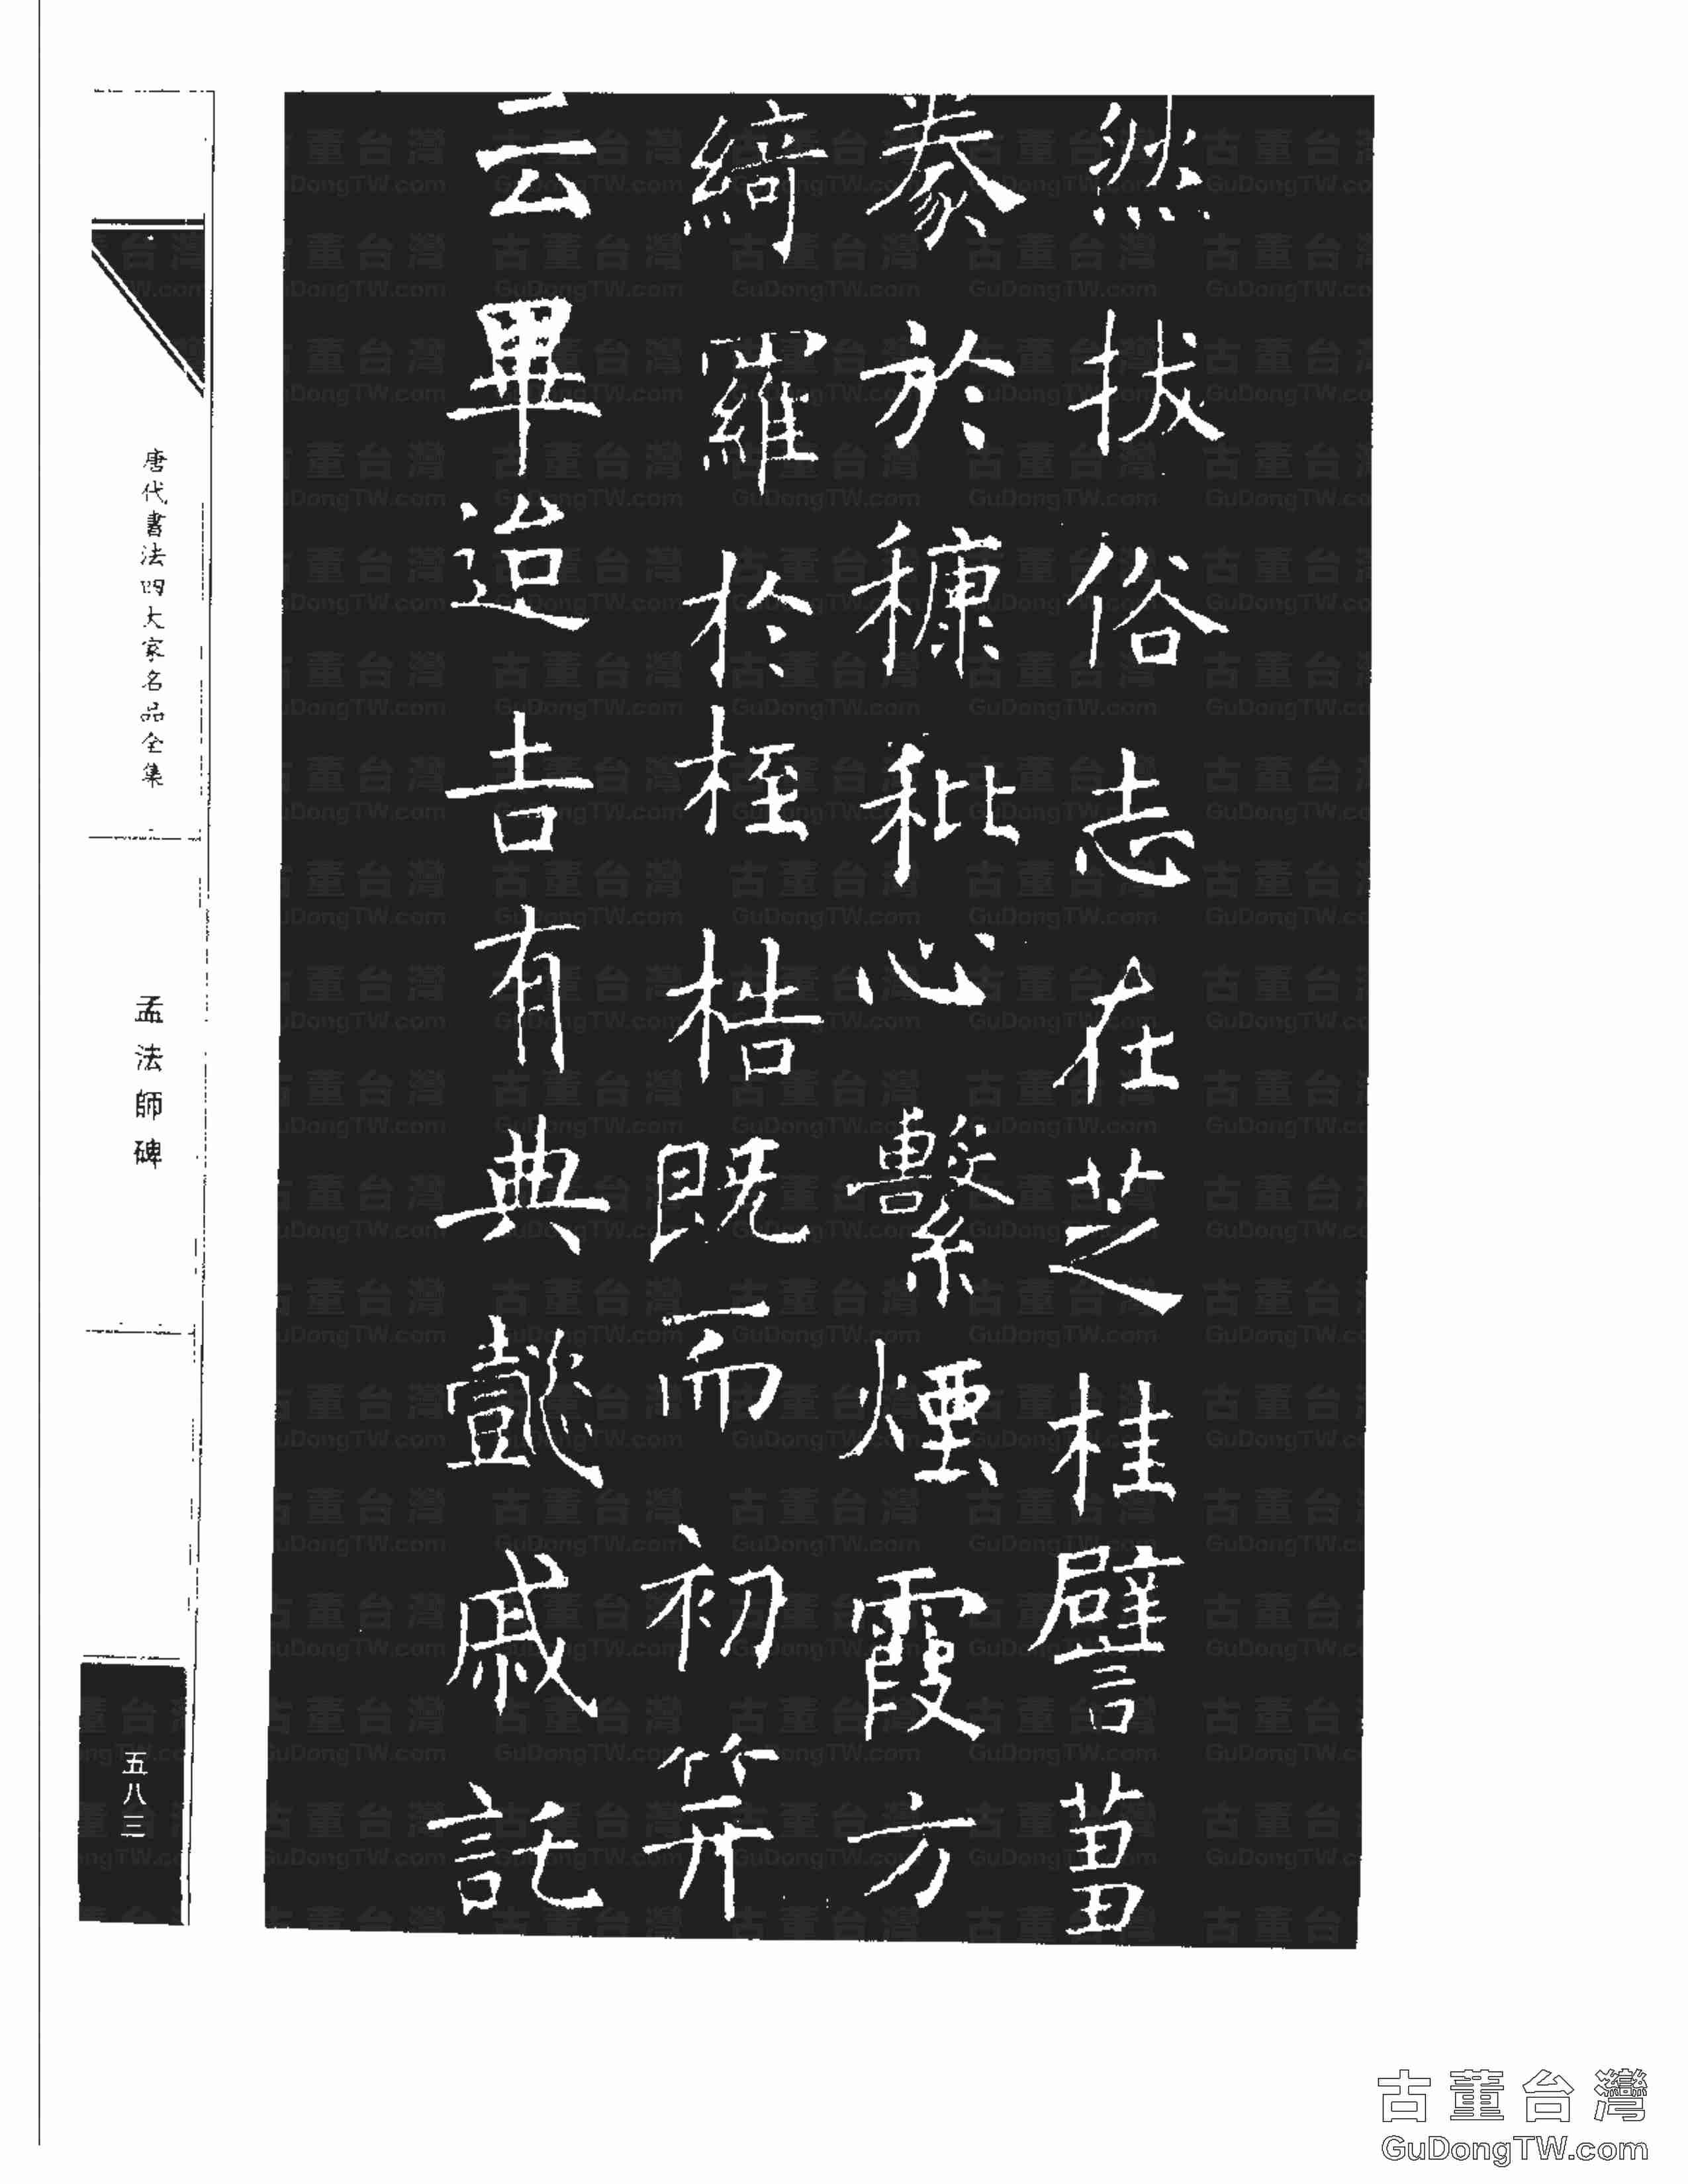 然拔俗志在芝桂譬蒭
豢於穅秕心繫煙霞方
綺羅於桎梏既而初笄
云畢迨吉有典懿戚託
唐代書法四大家名品全集
孟法師碑
五八三
古董台灣
GuDongTW.com